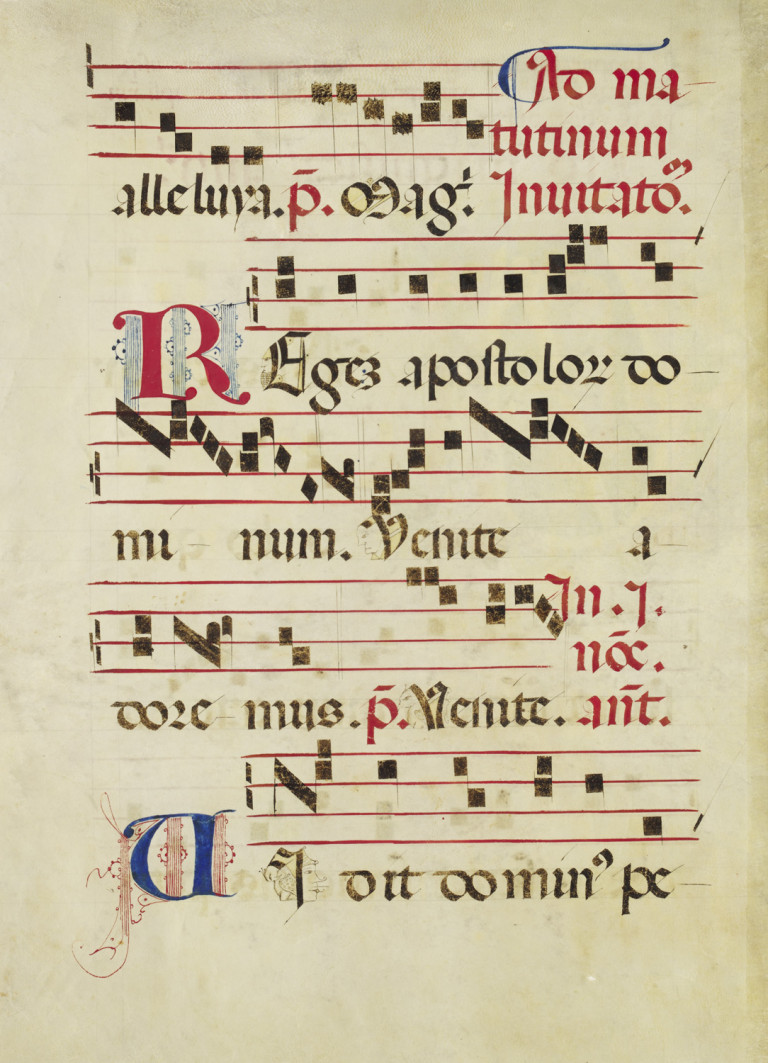 Ad ma-
tutinum
alleluya. p̄. Mag̃. Inuitato℥.
REgeƷ apostoloꝝ do-
mi- num. Venite a-
In .j.
noc̄.
dore- mus. p̄. Venite. an̄t.
UIdit dominꝰ pe-